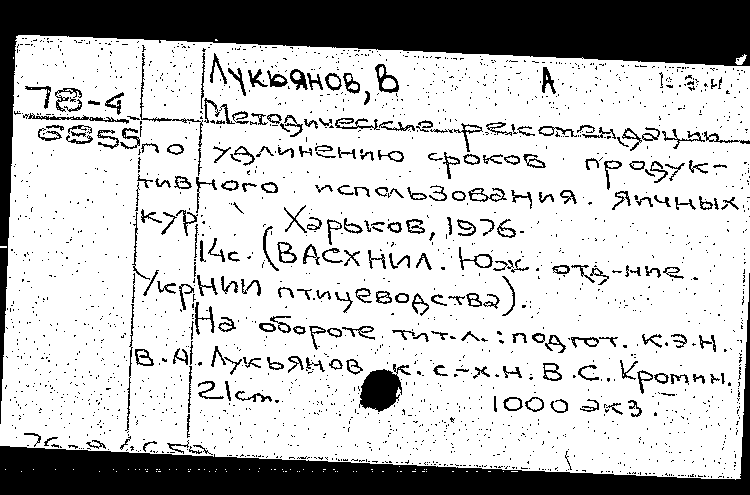 Лукьянов, В А к.э.н.
78-4
Методические рекомендации
6855
по удлинению сроков продук-
тивного использования яичных
кур. Харьков, 1976.
14с. (ВАСХНИЛ. Юж. отд-ние.
УкрНИИ птицеводства).
На обороте тит.л.: подгот. к.э.н.
В.А. Лукьянов к.с.-х.н. В.С. Кротин.
21cm. 1000 экз.